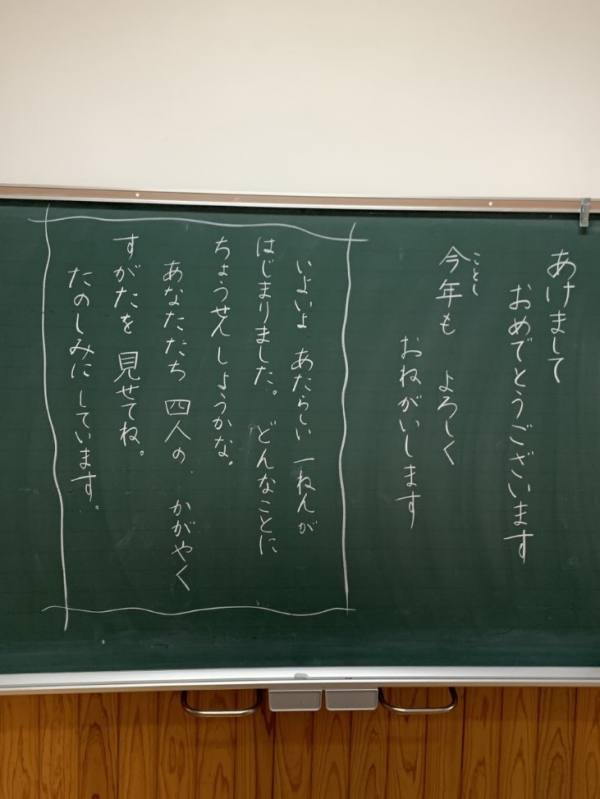 あけまして
おめでとうございます
ことし
今年も よろしく
おねがいします
いよいよ あたらしい 一ねんが
はじまりました。 どんなことに
ちょうせんしようかな。
あなたたち 四人の かがやく
すがたを 見せてね。
たのしみにしています。